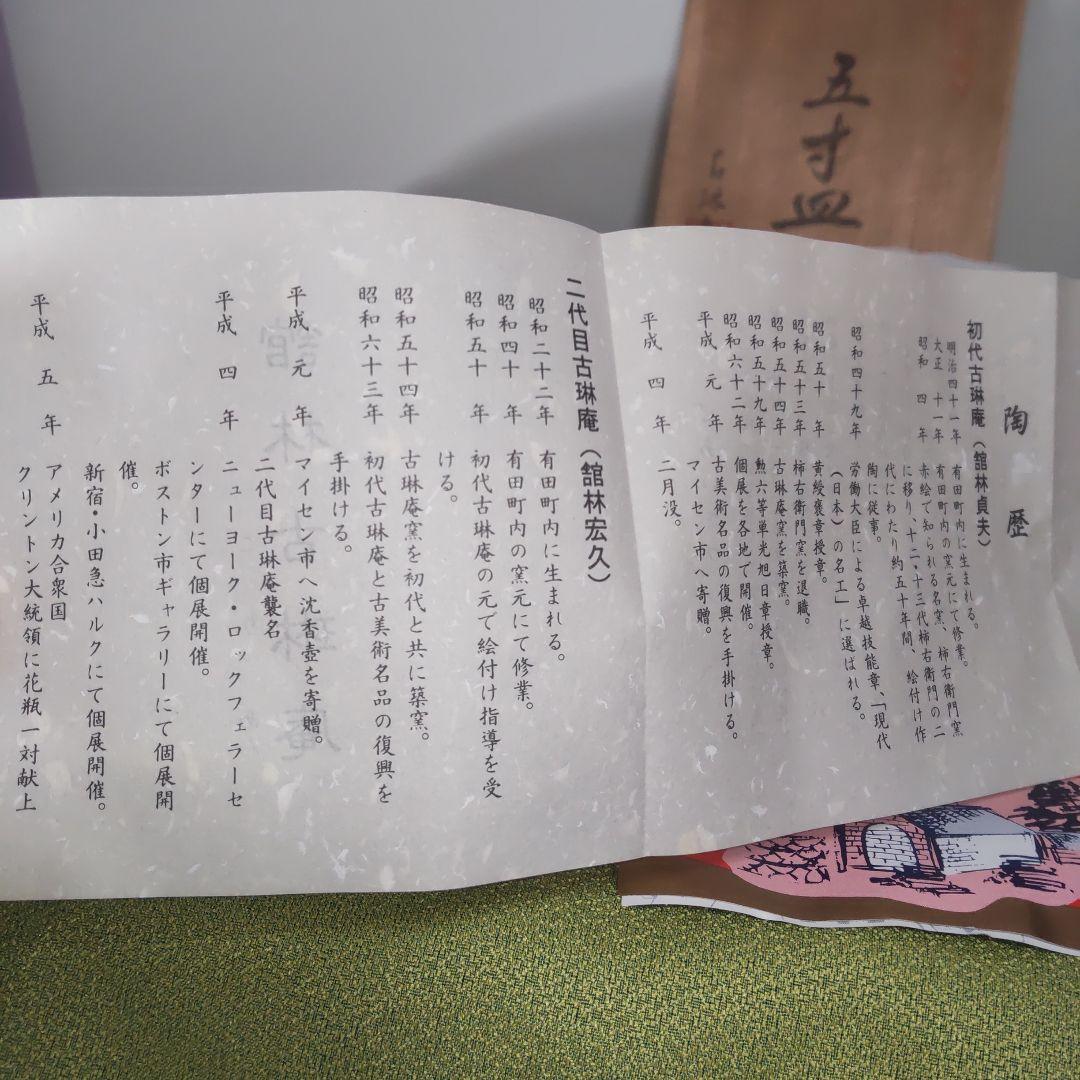 五寸皿
陶歴
初代古琳庵(舘林貞夫)
明治四十一年 有田町内に生まれる。
大正十一年 有田町内の窯元にて修業。
昭和四年 赤絵で知られる名窯、柿右衛門窯
に移り、十二・十三代柿右衛門の二
代にわたり約五十年間、絵付け作
陶に従事。
昭和四十九年 労働大臣による卓越技能章、「現代
(日本)の名工」に選ばれる。
昭和五十年 黄綬褒章授章。
昭和五十三年 柿右衛門窯を退職。
昭和五十四年 古琳庵窯を築窯。
昭和五十九年 勲六等単光旭日章授章。
昭和六十二年 個展を各地で開催。
古美術名品の復興を手掛ける。
平成元年 マイセン市へ寄贈。
平成四年 二月没。
二代目古琳庵(舘林宏久)
昭和二十二年 有田町内に生まれる。
昭和四十年 有田町内の窯元にて修業。
昭和五十年 初代古琳庵の元で絵付け指導を受
ける。
昭和五十四年 古琳庵窯を初代と共に築窯。
昭和六十三年 初代古琳庵と古美術名品の復興を
手掛ける。
平成元年 マイセン市へ沈香壺を寄贈。
二代目古琳庵襲名
平成四年 ニューヨーク・ロックフェラーセ
ンターにて個展開催。
ボストン市ギャラリーにて個展開
催。
新宿・小田急ハルクにて個展開催。
平成五年 アメリカ合衆国
クリントン大統領に花瓶一対献上